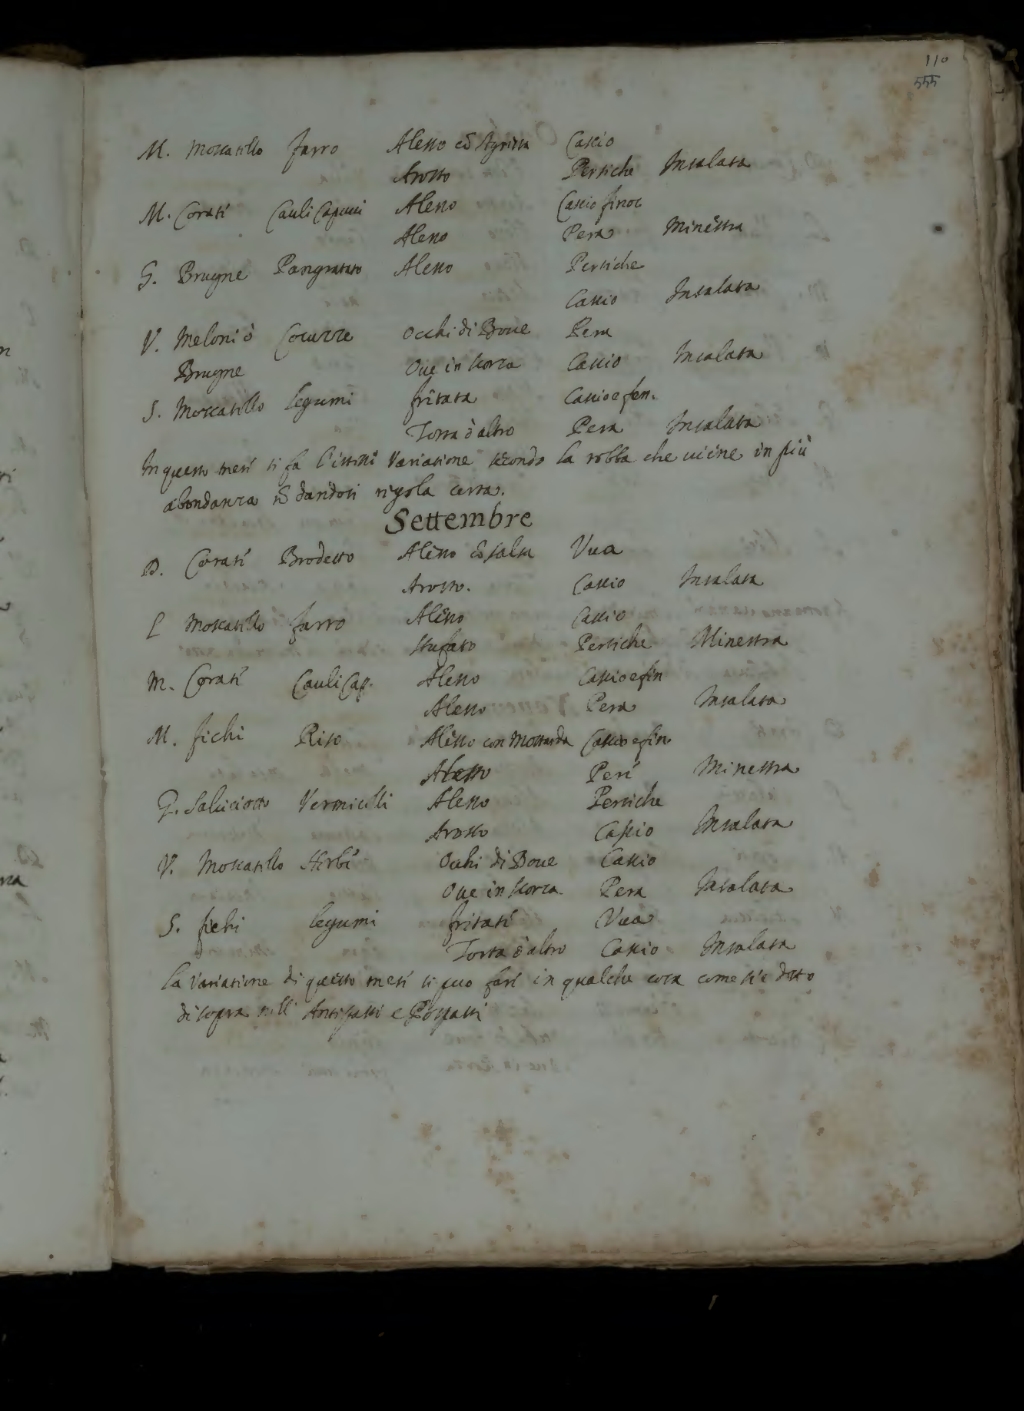 110
555
M. Moscatillo farro Alesso cõ Agresta Cascio
Arosto Persiche Insalata
M. Corati Cauli Capucci Alesso Cascio finoc
Alesso Pera Minestra
G. Brugne Pangratato Alesso Persiche
Cascio Insalata
V. Meloni ò Cocuzze Occhi di Boue Pera
Brugne Oue in scorza Cascio Insalata
S. Moscatillo legumi fritata Cascio e fen.
Torta ò altro Pera Insalata
In questo mesi si fa variatione secondo la robba che uiene in più
abondanza nõ dandosi rigola certa.
Settembre
D. Corati Brodetto Alesso cõ salsa Vua
Arosto. Cascio Insalata
L Moscatillo farro Alesso Cascio
Stufato Persiche Minestra
M. Corati Cauli Cap. Alesso Cascio e fin
Alesso Pera Insalata
M. fichi Riso Alesso con Mostarda Cascio e fin
Alesso Peri Minestra
G. Salsiciotto Vermicelli Alesso Persiche
Arosto Cascio Insalata
V. Moscatillo Herbi Occhi di Boue Cascio
Oue in scorza Pera Insalata
S. fichi legumi fritati Vua
Torta ò altro Cascio Insalata
la variatione di questo mesi si puo fari in qualche cosa come si è ditto
di sopra nelli Antipasti e Pospasti